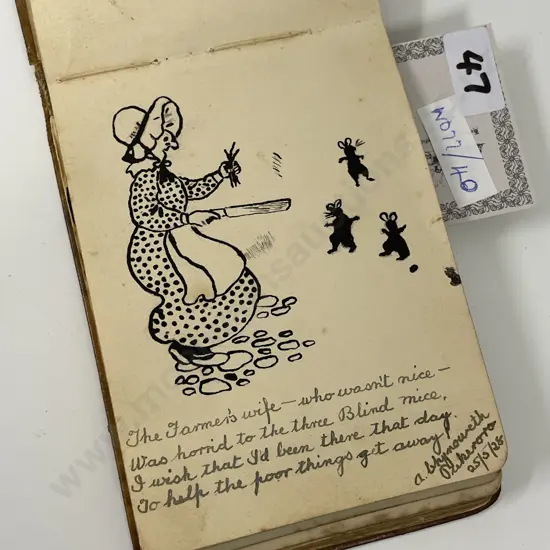 The Farmer's wife — who wasn't nice —
Was horrid to the three Blind mice,
I wish that I'd been there that day.
To help the poor things get away.
a.
25/5/28
47